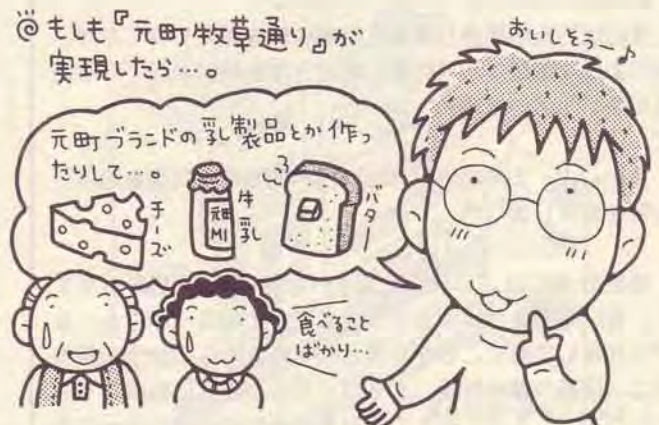 ◎もしも『元町牧草通り』が
実現したら…。
おいしそうー♪
元町ブランドの乳製品とか作っ
たりして…。
チーズ
元町
MI
牛乳
バター
食べること
ばかり…